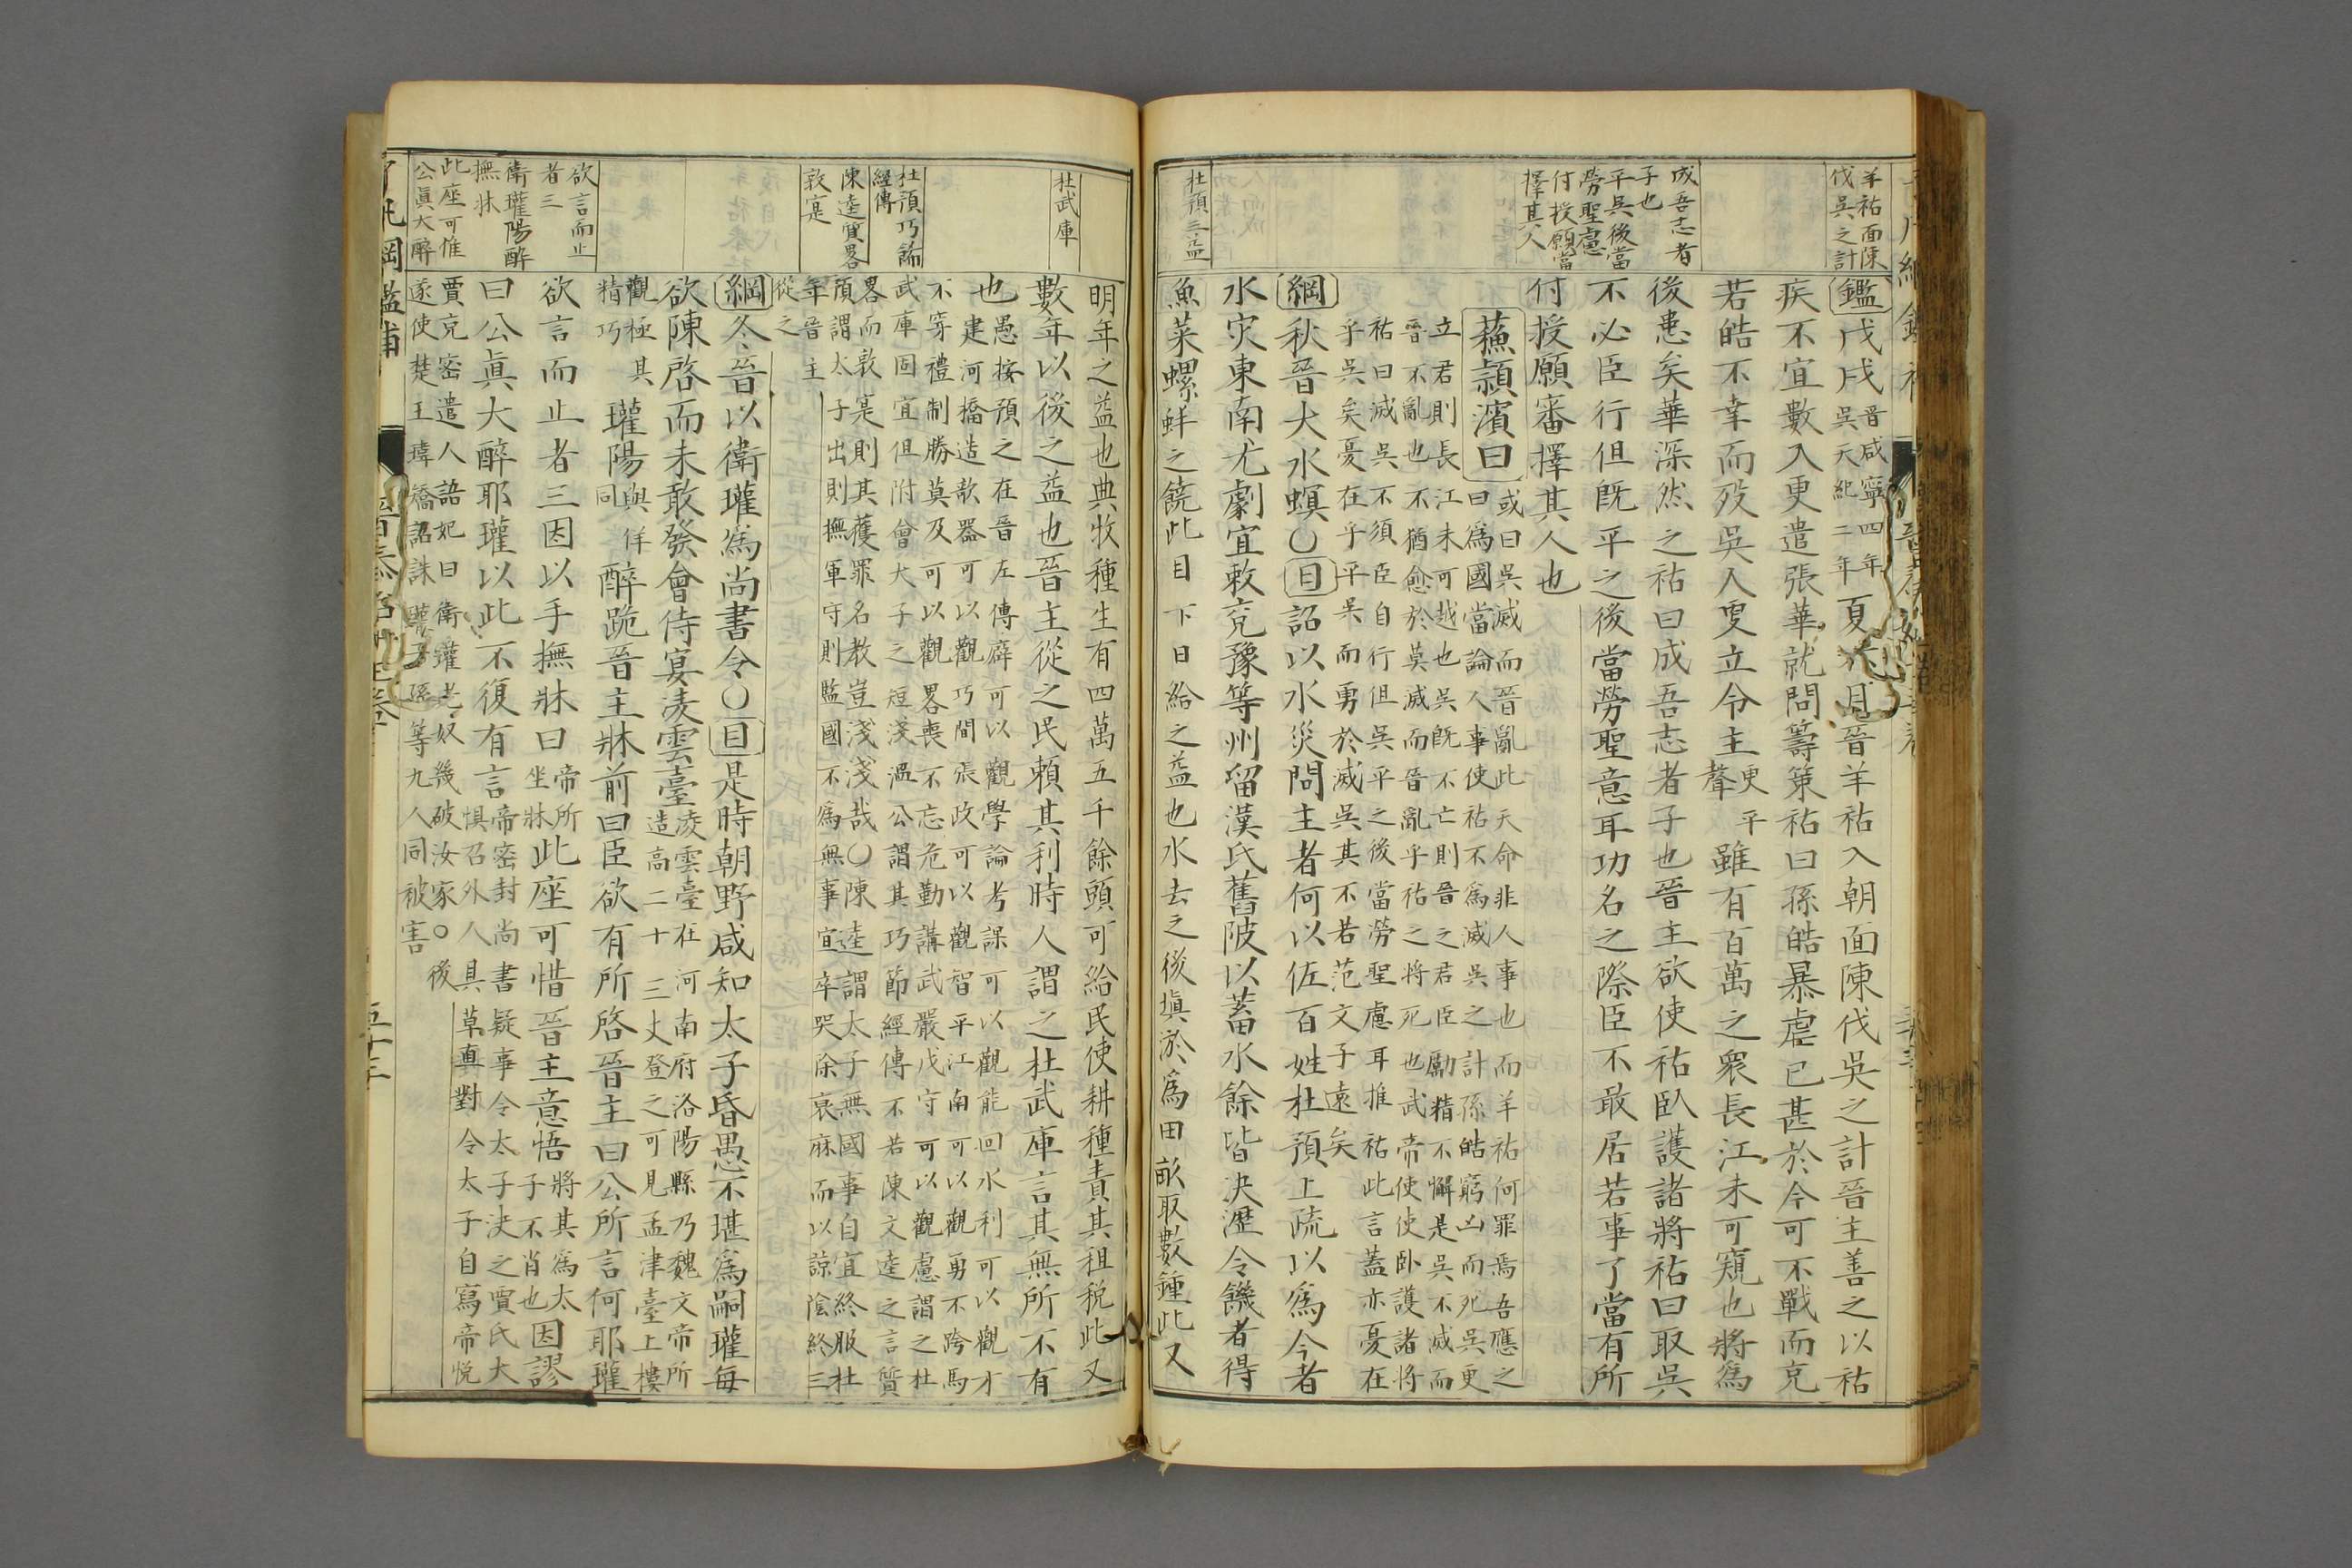 羊祜面陳
伐吳之計
成吾志者
子也
平吳後當
勞聖慮
付授願當
擇其人
杜預三益
鑑戊戌晉咸寧四年
吳天紀二年
夏
月晉羊祜入朝面陳伐吳之計晉主善之以祜
疾不宜數入更遣張華就問籌策祜曰孫皓暴虐已甚於今可不戰而克
若皓不幸而歿吳人更立令主更平
聲
雖有百萬之衆長江未可窺也將爲
後患矣華深然之祜曰成吾志者子也晉主欲使祜臥護諸將祜曰取吳
不必臣行但旣平之後當勞聖意耳功名之際臣不敢居若事了當有所
付授願審擇其人也
蘓潁濱曰
或曰吳滅而晉亂此天命非人事也而羊祜何罪焉吾應之
曰爲國當論人事使祜不爲滅吳之計孫皓窮凶而死吳更
立君則長江未可越也吳旣不亡則晉之君臣勵精不懈是吳不滅而
晉不亂也不猶愈於莫滅而晉亂乎祜之將死也武帝使使卧護諸將
祜曰滅吳不須臣自行但吳平之後當勞聖慮耳推祜此言蓋亦憂在
乎吳矣憂在乎平吳而勇於滅吳其不若范文子遠矣
綱秋晉大水螟○目詔以水災問主者何以佐百姓杜預上疏以爲今者
水灾東南尤劇宜敕兖豫等州留漢氏舊陂以蓄水餘皆决瀝令饑者得
魚菜螺蚌之饒此目下日給之益也水去之後塡淤爲田畝取數鍾此又
杜武庫
杜預巧論
經傳
陳逵質畧
敦寔
欲言而止
者三
衛瓘陽醉
撫牀
此座可惟
公眞大醉
明年之益也典牧種生有四萬五千餘頭可給民使耕種責其租税此又
數年以後之益也晉主從之民賴其利時人謂之杜武庫言其無所不有
也
愚按預之在晉左傳癖可以觀學論考課可以觀能回水利可以觀才
建河橋造欹器可以觀巧間張政可以觀智平江南可以觀勇不跨馬
不穿禮制勝莫及可以觀畧喪不忘危勤講武嚴戍守可以觀慮謂之杜
武庫固宜但附會大子之短淺溫公謂其巧節經傳不若陳文逵之言質
畧而敦寔則其獲罪名教豈淺淺哉○陳逵謂太子無國事自宜終服杜
預謂太子出則撫軍守則監國不爲無事宜卒哭除衰麻而以諒隂終三
年晉主
從之
綱冬晉以衛瓘爲尚書令○目是時朝野咸知太子昏愚不堪爲嗣瓘每
欲陳啓而未敢發會侍宴淩雲臺
淩雲臺在河南府洛陽縣乃魏文帝所
造高二十三丈登之可見孟津臺上樓
觀極其
精巧
瓘陽與佯
同
醉跪晉主牀前曰臣欲有所啓晉主曰公所言何耶瓘
欲言而止者三因以手撫牀曰帝所
坐牀
此座可惜晉主意悟將其爲太
子不肖也
因謬
曰公眞大醉耶瓘以此不復有言
帝密封尚書疑事令太子决之賈氏大
惧召外人具草眞對令太子自寫帝悦
賈充密遣人語妃曰衛瓘老奴幾破汝家○後
遂使楚王瑋矯詔誅瓘子孫等九人同被害